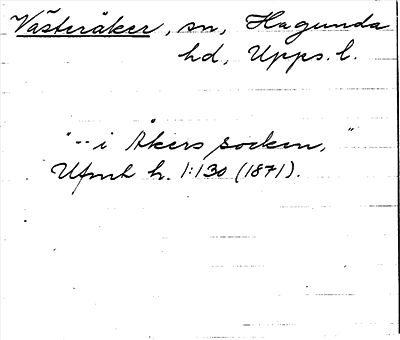 Västeråker, sn, Hagunda
hd, Upps. l.
"-- i Åkers socken,"
Ufmt h. 1:130 (1871).